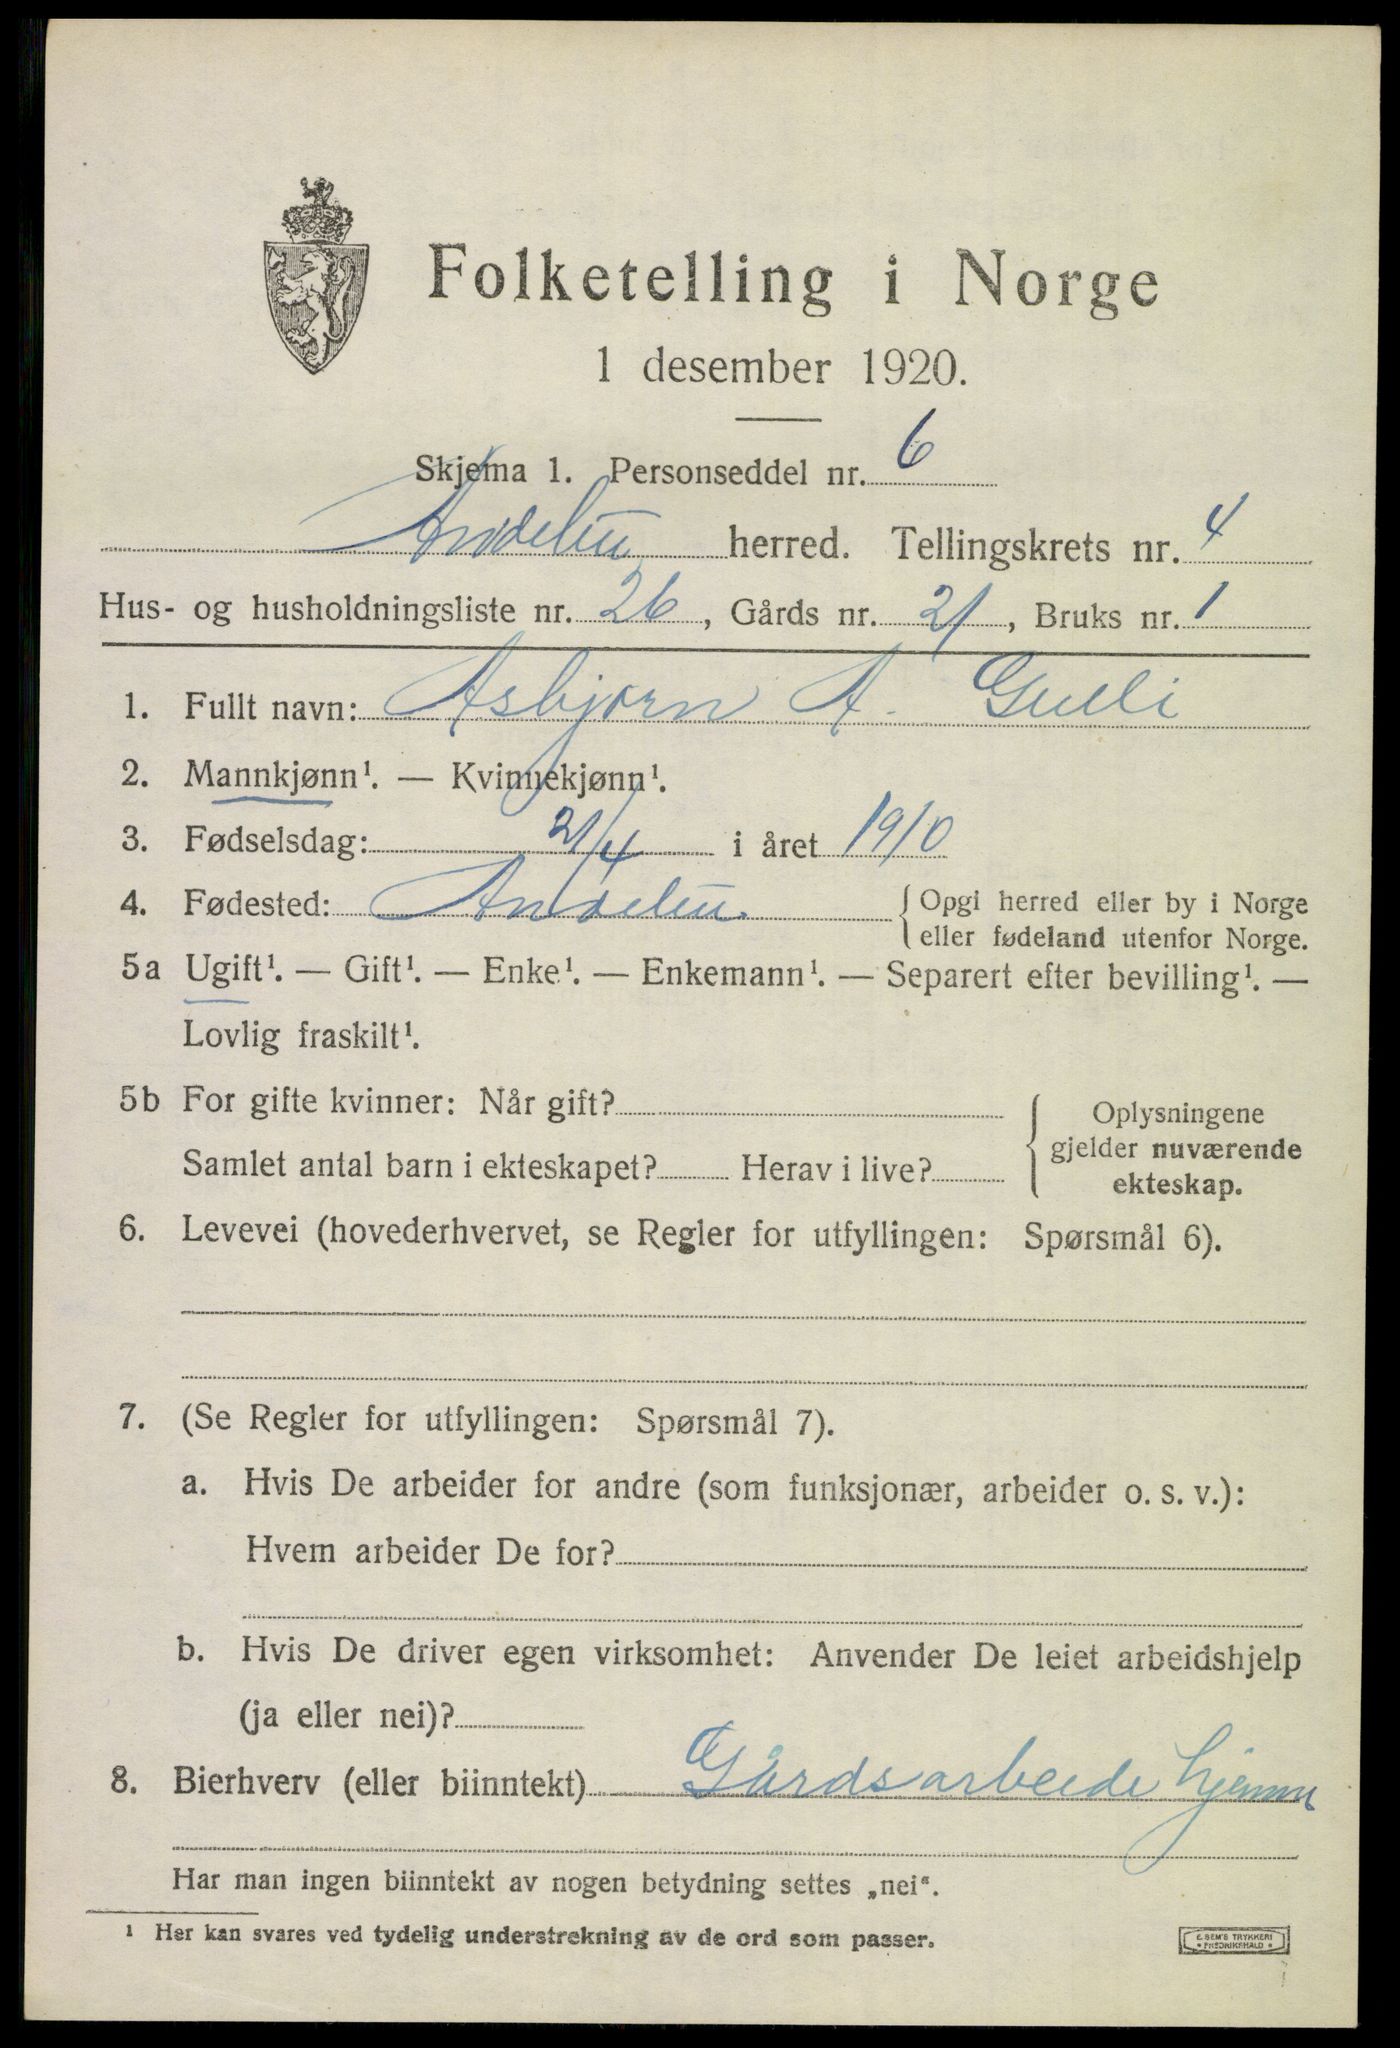 Folketelling i Norge
1 desember 1920.
Skjema 1. Personseddel nr. 6
Andebu herred. Tellingskrets nr. 4
Hus- og husholdningsliste nr. 26, Gårds nr. 21, Bruks nr. 1
1. Fullt navn: Asbjørn A. Gulli
2. Mannkjønn¹. — Kvinnekjønn¹.
3. Fødselsdag: 21/4 i året 1910
4. Fødested: Andebu. Opgi herred eller by i Norge
eller fødeland utenfor Norge.
5a Ugift¹. — Gift¹. — Enke¹. — Enkemann¹. — Separert efter bevilling¹. —
Lovlig fraskilt¹.
5b For gifte kvinner: Når gift?
Samlet antal barn i ekteskapet? Herav i live?
Oplysningene
gjelder nuværende
ekteskap.
6. Levevei (hovederhvervet, se Regler for utfyllingen: Spørsmål 6).
7. (Se Regler for utfyllingen: Spørsmål 7).
a. Hvis De arbeider for andre (som funksjonær, arbeider o. s. v.):
Hvem arbeider De for?
b. Hvis De driver egen virksomhet: Anvender De leiet arbeidshjelp
(ja eller nei)?
8. Bierhverv (eller biinntekt) Gårdsarbeide hjemme
Har man ingen biinntekt av nogen betydning settes „nei“.
¹ Her kan svares ved tydelig understrekning av de ord som passer.
E. SEM'S TRYKKERI
* FREDRIKSHALD *